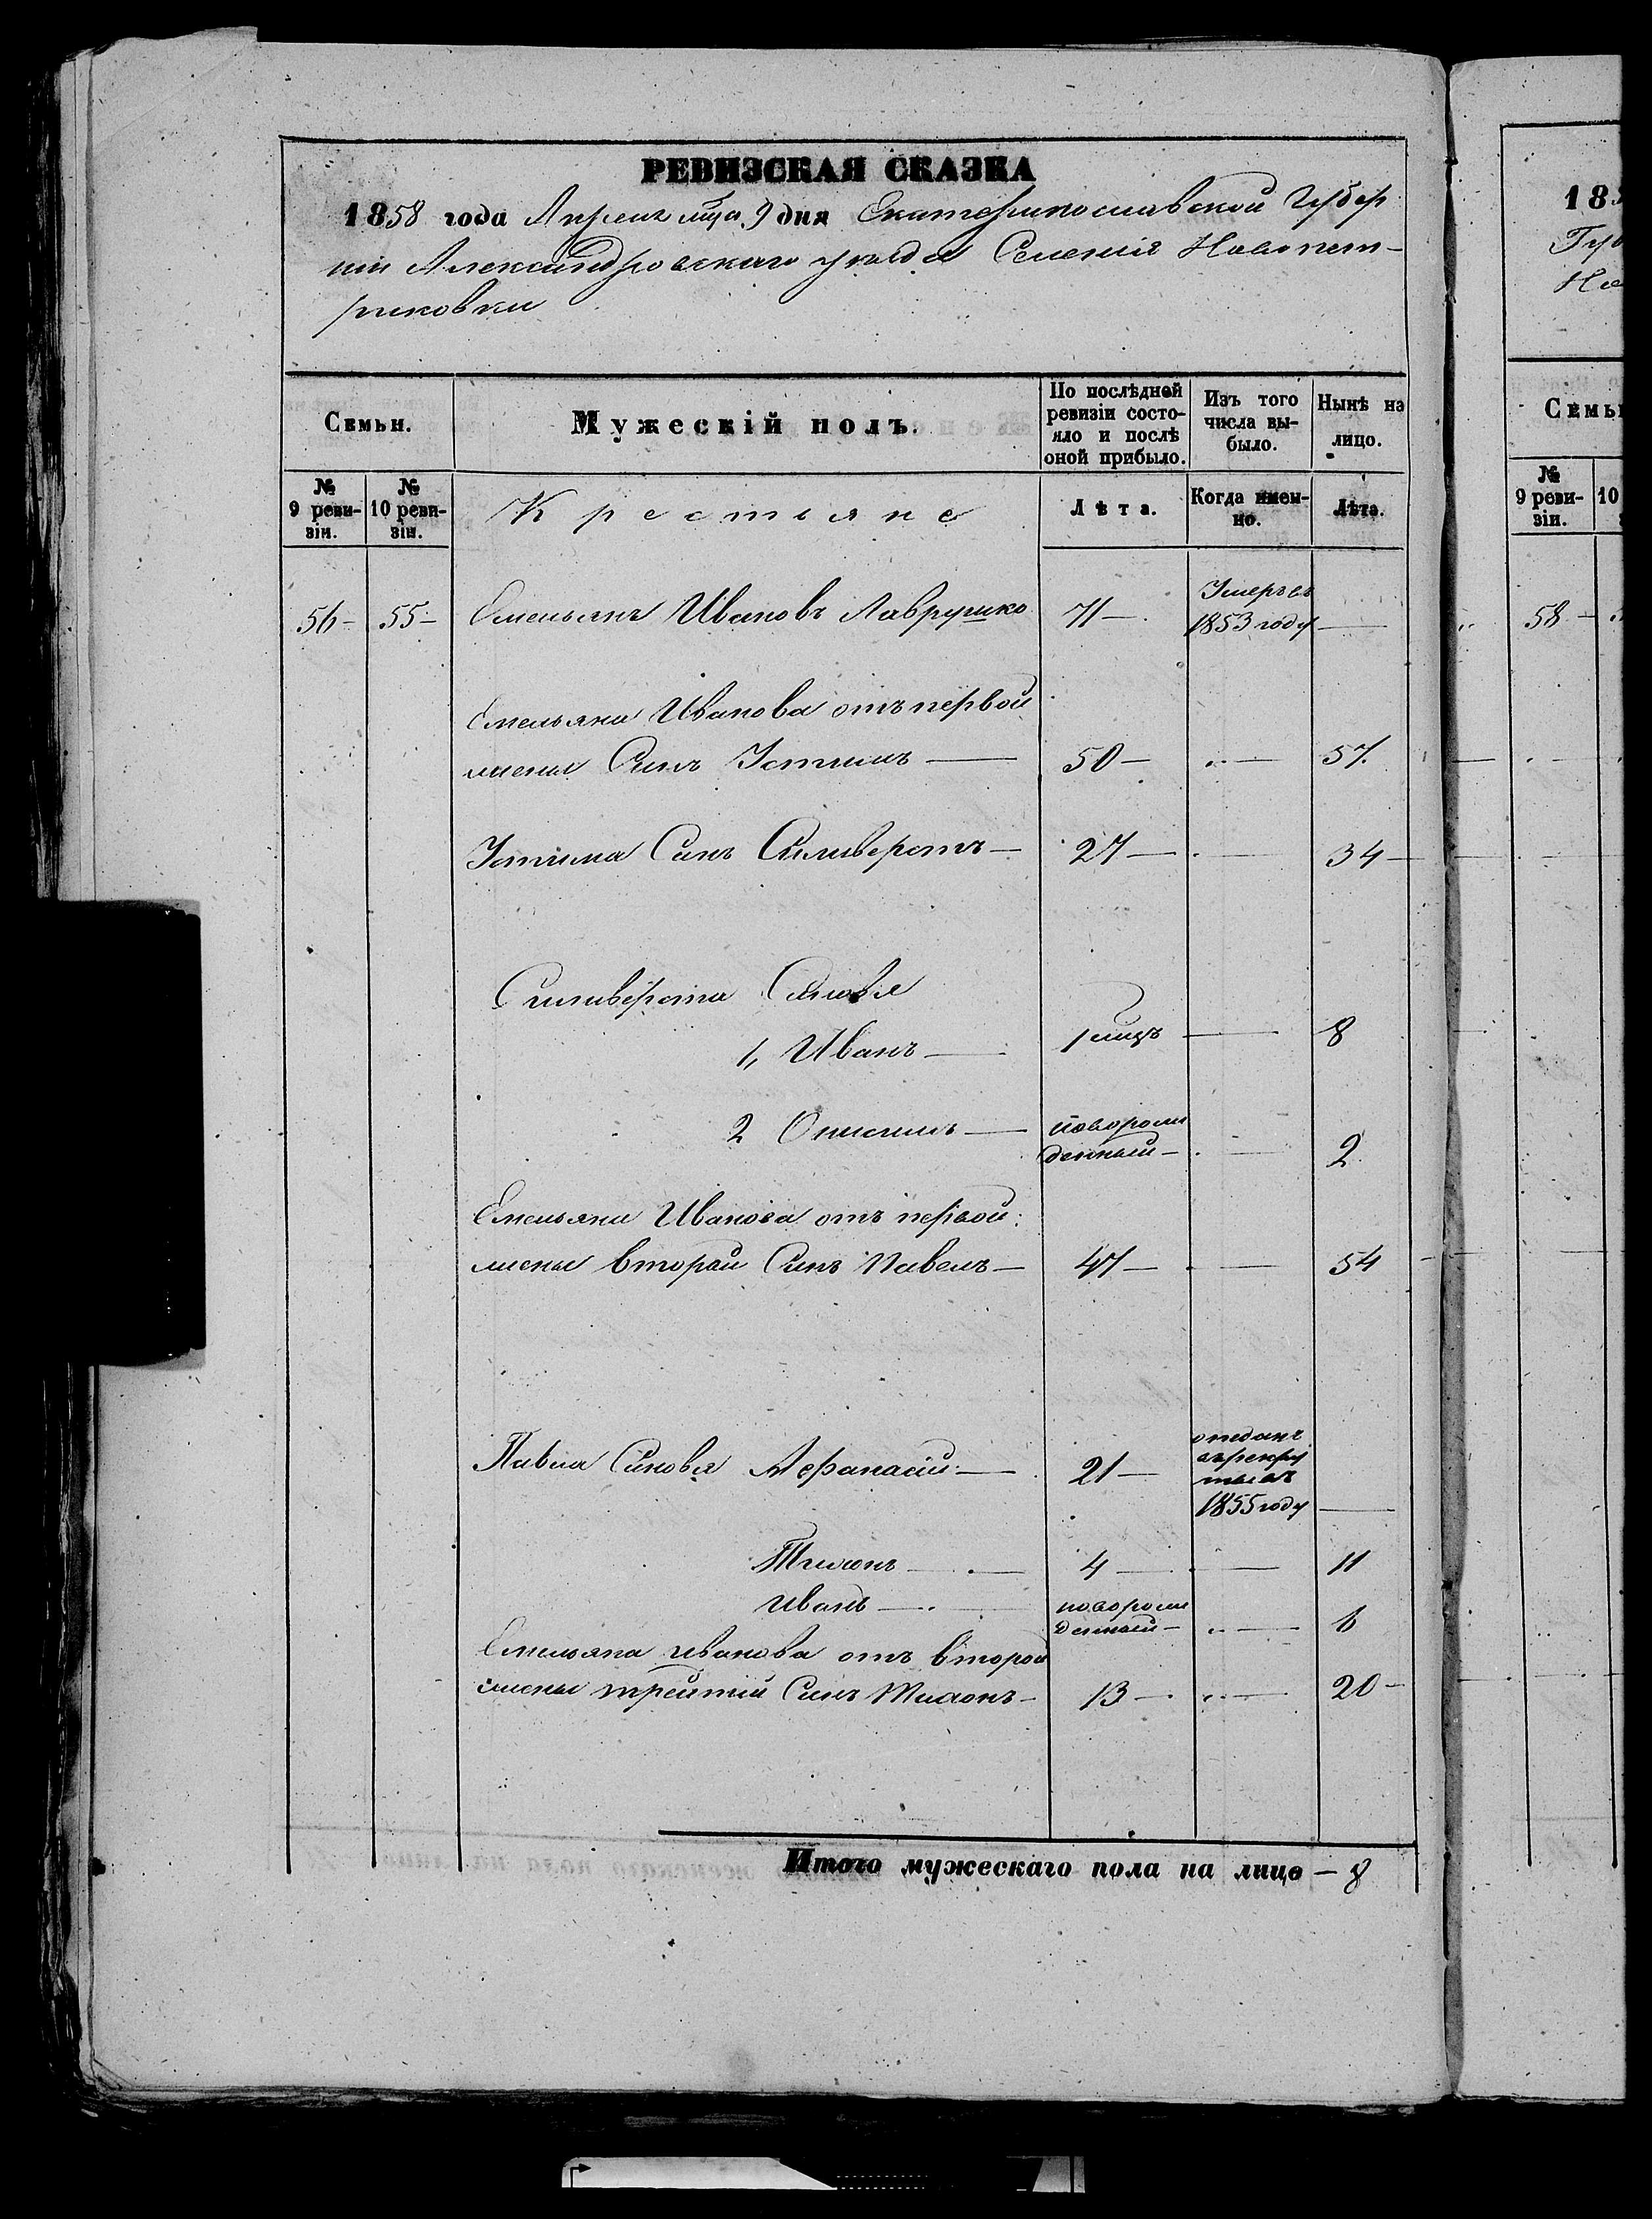 РЕВИЗСКАЯ СКАЗКА
1858 года Апреля мца 9 дня Екатеринославской Губер
ніи Александровскаго уезда Селенія Новопет-
риковки
Семьи.
Мужескій полъ.
По послѣдней ревизіи состо-яло и послѣ оной прибыло.
Изъ того числа вы-было.
Нынѣ на лицо.
№ 9 реви-зіи.
№ 10 реви-зіи.
Крестьяне
Лѣта.
Когда имен-но.
Лѣта.
56 - 55 - Емельянъ Ивановъ Лаврушко 71 - Умеръ въ 1853 году —
Емельяна Иванова отъ первой
жены Сынъ Устимъ — 50 - — 57
Устима Сынъ Сильверстъ — 27 — — 34 -
Сильверста Сыновья
1, Иванъ — 1 мцъ — 8
2 Онисимъ — новорож денный - — 2
Емельяна Иванова отъ первой
жены второй Сынъ Павелъ — 47 - — 54
Павла Сыновья Афанасій — 21 — отданъ въ рекру ты въ 1855 году —
Тихонъ — 4 — — 11
Иванъ — новорож денный - — 6
Емельяна Иванова отъ второй
жены третій Сынъ Тихонъ - 13 — — 20 -
Итого мужескаго пола на лице — 8
183
Губ
Но
Семьи
№ 9 реви-зіи.
10
58 -